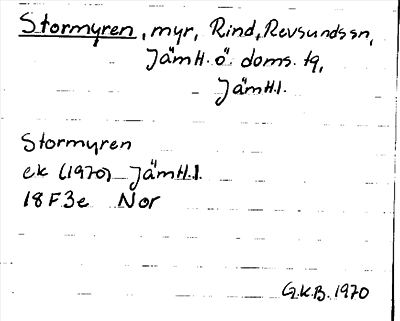 Stormyren, myr, Rind, Revsunds sn,
Jämtl. ö doms. tg,
Jämtl.l.
Stormyren
ek (1970) Jämtl.l.
18F3e Nor
G.K.B. 1970